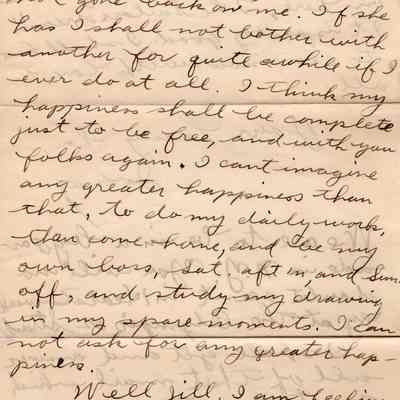 gone back on me. If she
has I shall not bother with
another for quite awhile if I
ever do at all. I think my
happiness shall be complete
just to be free, and with you
folks again. I cant imagine
any greater happiness than
that, to do my daily work,
than come home, and be my
own boss, Sat. aft in, and Sun.
off, and study my drawing
in my spare moments. I can
not ask for any greater hap-
piness.
Well Jill, I am feeling